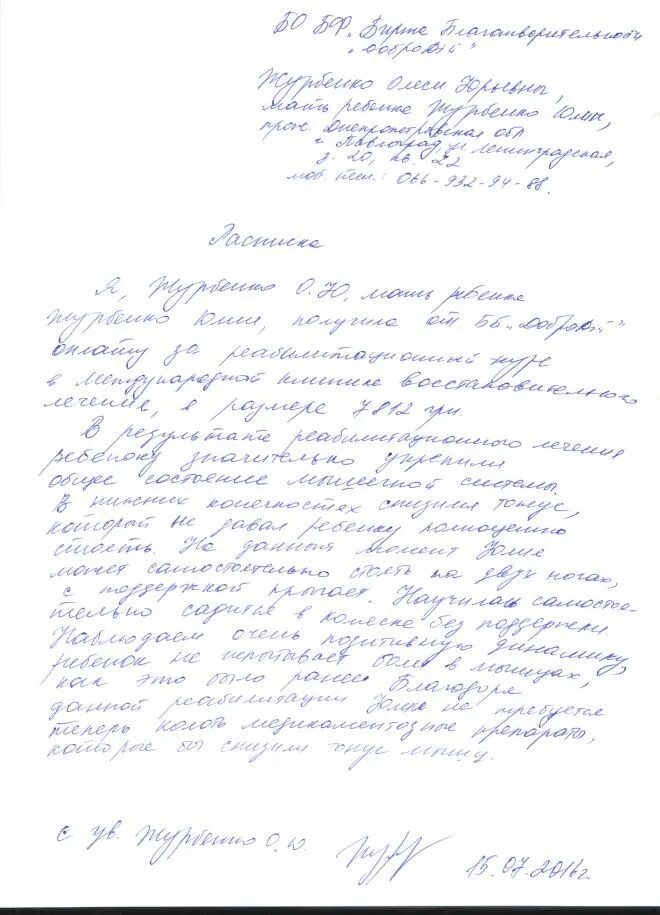 БО БФ „Биржа Благотворительности
„Добродій"
Журбенко Олеси Юрьевны,
мать ребенка Журбенко Юлии,
прож. Днепропетровская обл
г. Павлоград, ул. Ленинградская,
д. 20, кв. 22
моб. тел.: 066-932-94-88.
Расписка
Я, Журбенко О.Ю, мать ребенка
Журбенко Юлии, получила от ББ „Добродій"
оплату за реабилитационный курс
в Международной клинике восстановительного
лечения, в размере 7812 грн.
В результате реабилитационного лечения
ребенку значительно укрепили
общее состояние мышечной системы.
В нижних конечностях снизился тонус,
который не давал ребенку полноценно
стоять. На данный момент Юлия
может самостоятельно стоять на двух ногах,
с поддержкой прыгает. Научилась самостоя-
тельно садится в коляске без поддержки.
Наблюдаем очень позитивную динамику,
ребенок не испытывает боли в мышцах,
как это было ранее. Благодаря
данной реабилитации Юлие не требуется
теперь колоть медикаментозные препараты,
которые бы снизили тонус мышц.
с ув. Журбенко О.Ю.
15.07.2016г.